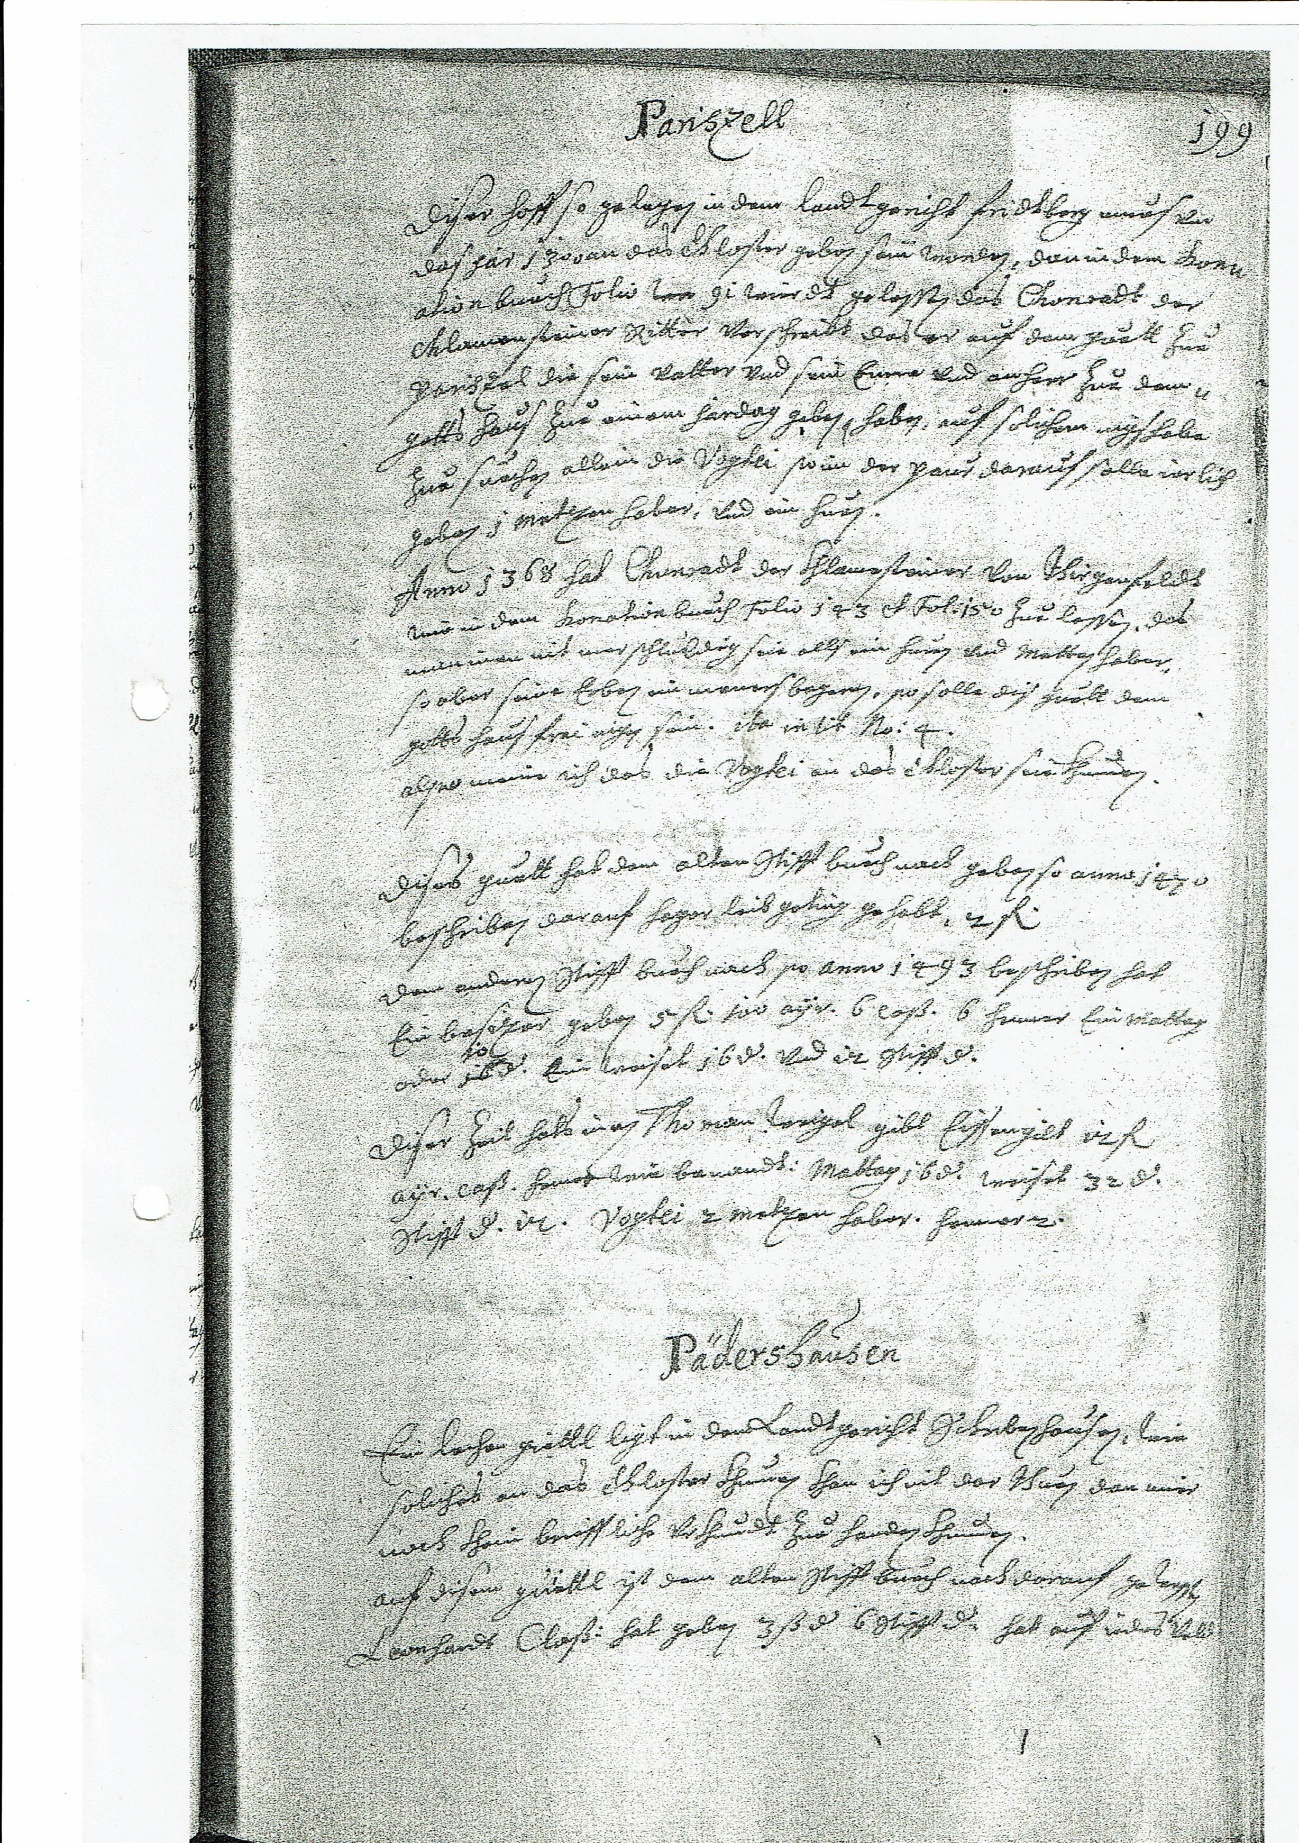 Pariszell
199
Diser hoff so gelegen in dem landtgericht fridtberg mues vor
das jar 1300 an das Chloster geben sein worden, dan in dem Dona
ation buech Folio 91 wirdt gelessen das Chonradt der
Chlamensteiner Ritter verschreibt das er auf dem guett zue
Pariszel die sein vatter und sein Enne und anherr zue dem
gotts haus zue einem jardag geben haben, auf solichem nigs habe
zue suechen allein die Vogtei so im der paur darauf solle ierlich
geben 1 metzen haber, und ein huen.
Anno 1368 hat Chonradt der Chlamensteiner von Thirgenfeldt
wie in dem Donation buech Folio 143 et Fol: 150 zue lessen, das
man im nit mer schuldig sei als ein huen und Metzen haber,
so aber seine Erben ein merers begeren, so solle dis guett dem
gotts haus frei eigen sein. ita in lit No: 4.
also meine ich das die Vogtei an das Chloster sei khumen.
Dises guett hat dem alten Stifft buech nach geben so anno 1470
beschriben darauf heger leibgeding gehabt, 2 fl.
Dem anderen Stifft buech nach so anno 1493 beschriben hat
Ein besizer geben 5 fl. 100 ayr. 6 cass. 6 henner Ein Mettag
oder 16 d. Ein weiset 16 d. und 12 Stifft d.
Diser Zeit hats innen Thoman weigel gibt hissengilt 12 fl
ayr. cass. henner wie benandt: Mettag 16 d. weiset 32 d.
Stifft d. 12. Vogtei 2 metzen haber. henner 2.
Pädershausen
Ein lechen güettl ligt in dem Landtgericht Schrobenhausen, wie
soliches an das Chloster khumen khan ich nit dar thuen dan mir
noch khein briefliche Urkhundt zue handen khumen.
auf disem güettl ist dem alten Stifft buech nach darauf gesessen
Leonhardt Closs: hat geben 3 ß d 6 Stifft d. hat auf